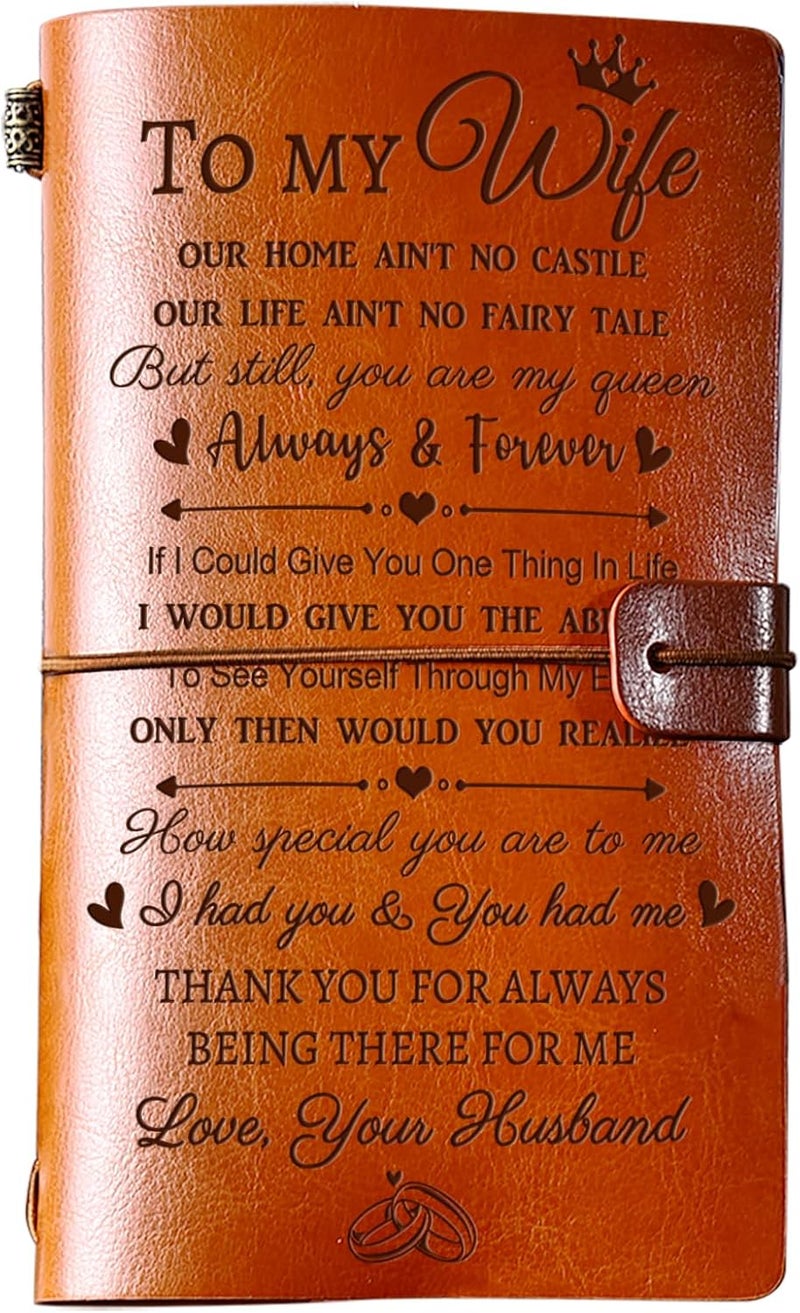 TO MY Wife
OUR HOME AIN'T NO CASTLE
OUR LIFE AIN'T NO FAIRY TALE
But still, you are my queen
Always & Forever
If I Could Give You One Thing In Life
I WOULD GIVE YOU THE
To See Yourself Through My
ONLY THEN WOULD YOU
How special you are to me
I had you & You had me
THANK YOU FOR ALWAYS
BEING THERE FOR ME
Love, Your Husband